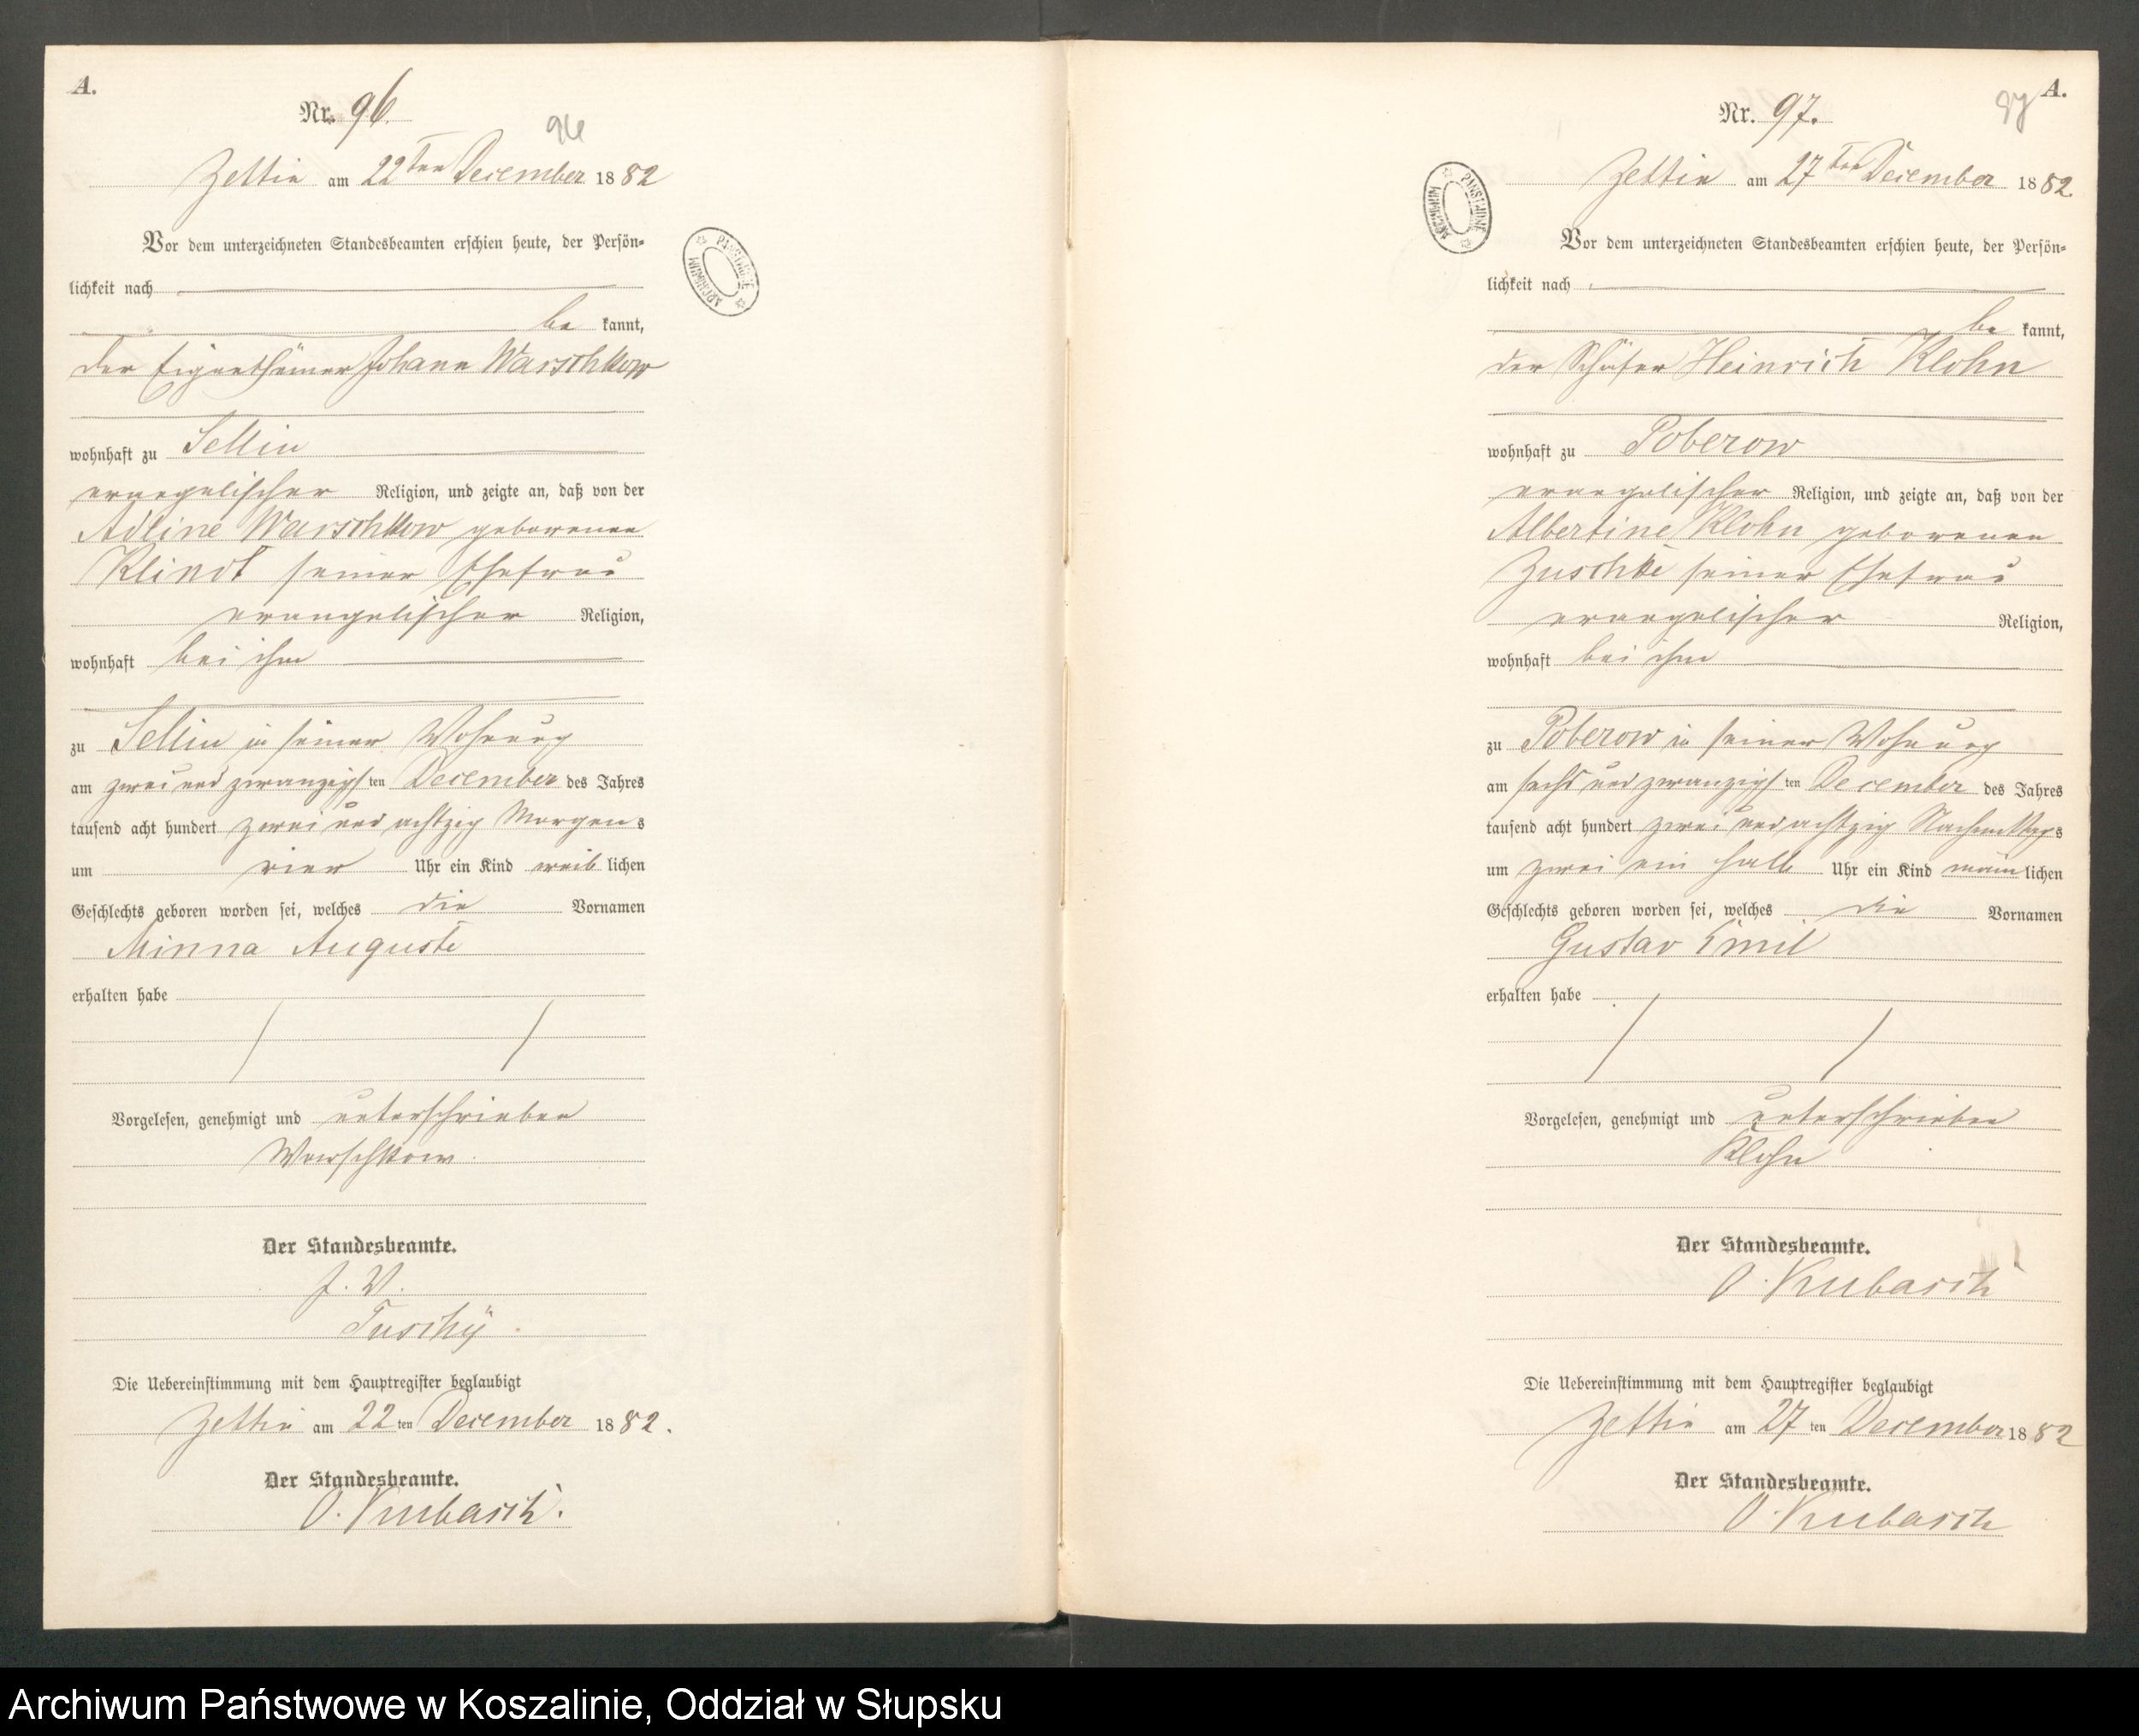 A.
Nr. 96.
96
Zettin am 22ten December 1882
Vor dem unterzeichneten Standesbeamten erschien heute, der Persön-
lichkeit nach
be kannt,
der Eigenthümer Johann Warschkow
wohnhaft zu Sellin
evangelischer Religion, und zeigte an, daß von der
Adline Warschkow geborenen
Klindt seiner Ehefrau
evangelischer Religion,
wohnhaft bei ihm
zu Sellin in seiner Wohnung
am zwei und zwanzigsten December des Jahres
tausend acht hundert zwei und achtzig Morgens
um vier Uhr ein Kind weiblichen
Geschlechts geboren worden sei, welches die Vornamen
Minna Auguste
erhalten habe
Vorgelesen, genehmigt und unterschrieben
Warschkow.
Der Standesbeamte.
J. V.
Tuschÿ
Die Uebereinstimmung mit dem Hauptregister beglaubigt
Zettin am 22ten December 1882.
Der Standesbeamte.
O. Kubasch.
ARCHIWUM PAŃSTWOWE
A.
97
Nr. 97.
Zettin am 27ten December 1882.
Vor dem unterzeichneten Standesbeamten erschien heute, der Persön-
lichkeit nach
be kannt,
der Schäfer Heinrich Klohn
wohnhaft zu Poberow
evangelischer Religion, und zeigte an, daß von der
Albertine Klohn geborenen
Zuschke seiner Ehefrau
evangelischer Religion,
wohnhaft bei ihm
zu Poberow in seiner Wohnung
am sechs und zwanzigsten December des Jahres
tausend acht hundert zwei und achtzig Nachmittags
um zwei ein halb Uhr ein Kind männlichen
Geschlechts geboren worden sei, welches die Vornamen
Gustav Emil
erhalten habe
Vorgelesen, genehmigt und unterschrieben
Klohn
Der Standesbeamte.
O. Kubasch
Die Uebereinstimmung mit dem Hauptregister beglaubigt
Zettin am 27ten December 1882
Der Standesbeamte.
O. Kubasch
ARCHIWUM PAŃSTWOWE
Archiwum Państwowe w Koszalinie, Oddział w Słupsku